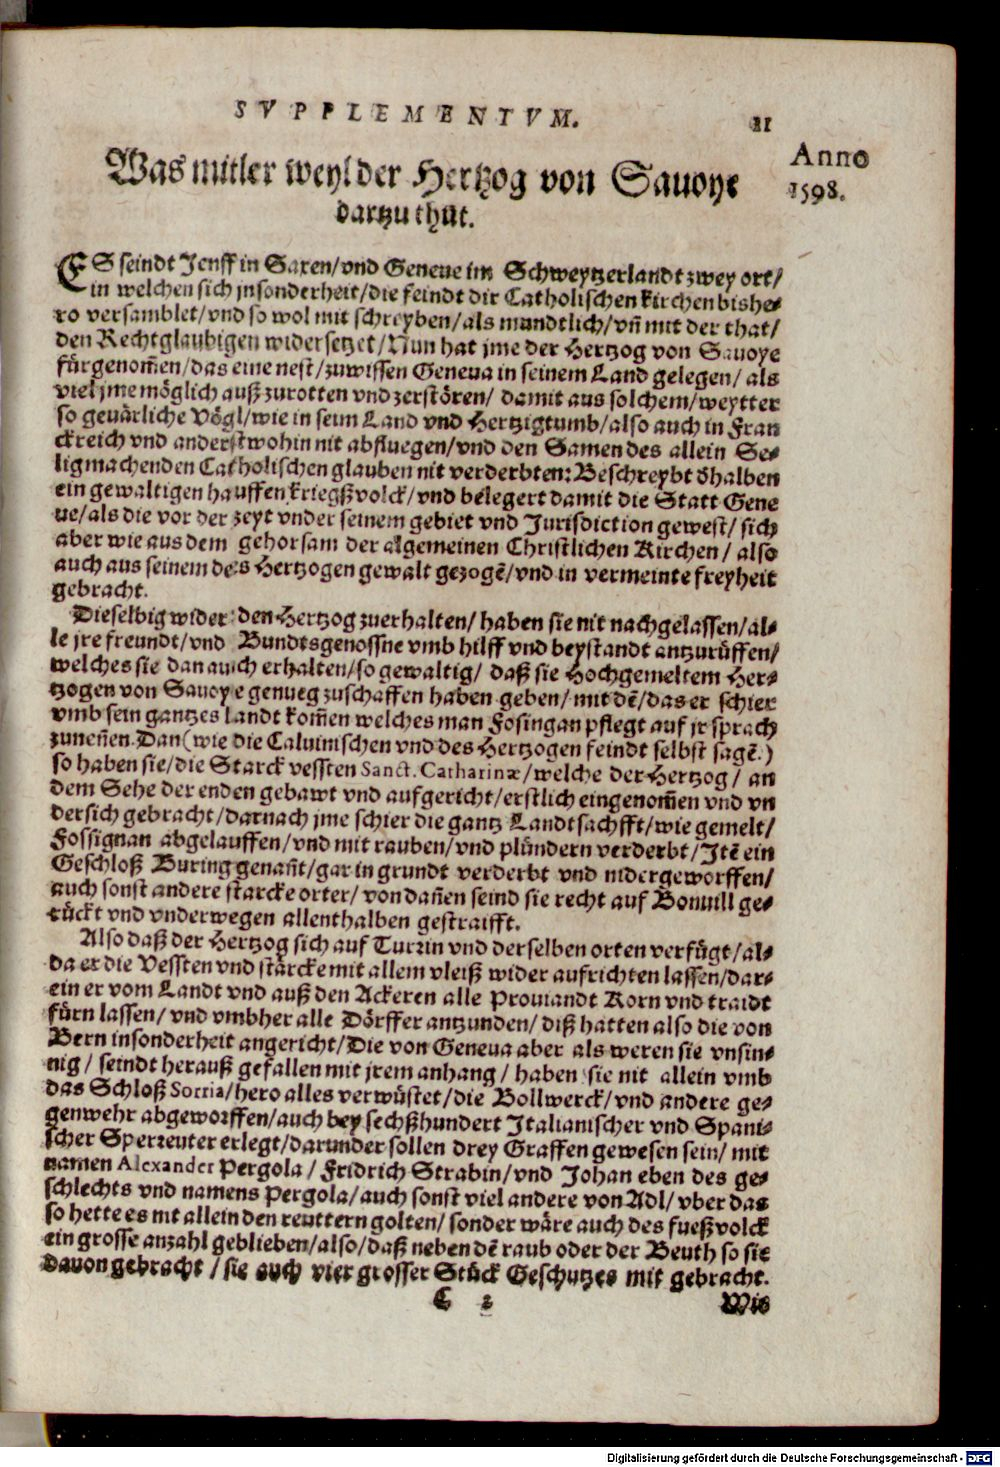 SVPPLEMENTVM.
21
Anno
1598.
Was mitler weyl der Hertzog von Sauoye
dartzu thut.
ES seindt Jenff in Saxen/vnd Geneue im Schweytzerlandt zwey ort/
in welchen sich jnsonderheit/die feindt dir Catholischen kirchen bishe-
ro versamblet/vnd so wol mit schreyben/als mundtlich/vñ mit der that/
den Rechtglaubigen widersetzet/Nun hat jme der Hertzog von Sauoye
fürgenom̃en/das eine nest/zuwissen Geneua in seinem Land gelegen/als
viel jme möglich außzurotten vnd zerstören/damit aus solchem/weytter
so geuärliche Vögl/wie in seim Land vnd Hertzigtumb/also auch in Fran
ckreich vnd anderstwohin nit abfluegen/vnd den Samen des allein Se-
ligmachenden Catholischen glauben nit verderbten: Beschreybt ðhalben
ein gewaltigen hauffen kriegßvolck/vnd belegert damit die Statt Gene
ue/als die vor der zeyt vnder seinem gebiet vnd Jurisdiction gewest/sich
aber wie aus dem gehorsam der algemeinen Christlichen Kirchen/also
auch aus seinem des Hertzogen gewalt gezogẽ/vnd in vermeinte freyheit
gebracht.
Dieselbig wider den Hertzog zuerhalten/haben sie nit nachgelassen/al-
le jre freundt/vnd Bundtsgenossne vmb hilff vnd beystandt antzurüffen/
welches sie dan auch erhalten/so gewaltig/daß sie Hochgemeltem Her-
tzogen von Sauoye genueg zuschaffen haben geben/mit dẽ/das er schier
vmb sein gantzes landt kom̃en welches man Fosingan pflegt auf jr sprach
zuneñen. Dan (wie die Caluinischen vnd des Hertzogen feindt selbst sagẽ.)
so haben sie/die Starck vessten Sanct. Catharinæ/welche der Hertzog/an
dem Sehe der enden gebawt vnd aufgericht/erstlich eingenom̃en vnd vn
dersich gebracht/darnach jme schier die gantz Landtsachfft/wie gemelt/
Fossignan abgelauffen/vnd mit rauben/vnd plündern verderbt/Itẽ ein
Geschloß Buring genañt/gar in grundt verderbt vnd nidergeworffen/
auch sonst andere starcke orter/von dañen seind sie recht auf Bonuill ge-
rückt vnd vnderwegen allenthalben gestraifft.
Also daß der Hertzog sich auf Turzin vnd derselben orten verfügt/al-
da er die Vessten vnd stärcke mit allem vleiß wider aufrichten lassen/dar-
ein er vom Landt vnd auß den Ackeren alle Prouiandt Korn vnd traidt
fürn lassen/vnd vmbher alle Dörffer antzunden/diß hatten also die von
Bern insonderheit angericht/Die von Geneua aber als weren sie vnsin-
nig/seindt herauß gefallen mit jrem anhang/haben sie nit allein vmb
das Schloß Soccia/hero alles verwüstet/die Bollwerck/vnd andere ge-
genwehr abgeworffen/auch bey sechßhundert Italianischer vnd Spani-
scher Sperreuter erlegt/darunder sollen drey Graffen gewesen sein/mit
namen Alexander Pergola/Fridrich Strabin/vnd Johan eben des ge-
schlechts vnd namens Pergola/auch sonst viel andere von Adl/vber das
so hette es nit allein den reuttern golten/sonder wäre auch des fueßvolck
ein grosse anzahl geblieben/also/daß neben dẽ raub oder der Beuth so sie
dauon gebracht/sie auch vier grosser Stück Geschutzes mit gebracht.
C 2
Wie
Digitalisierung gefördert durch die Deutsche Forschungsgemeinschaft - DFG